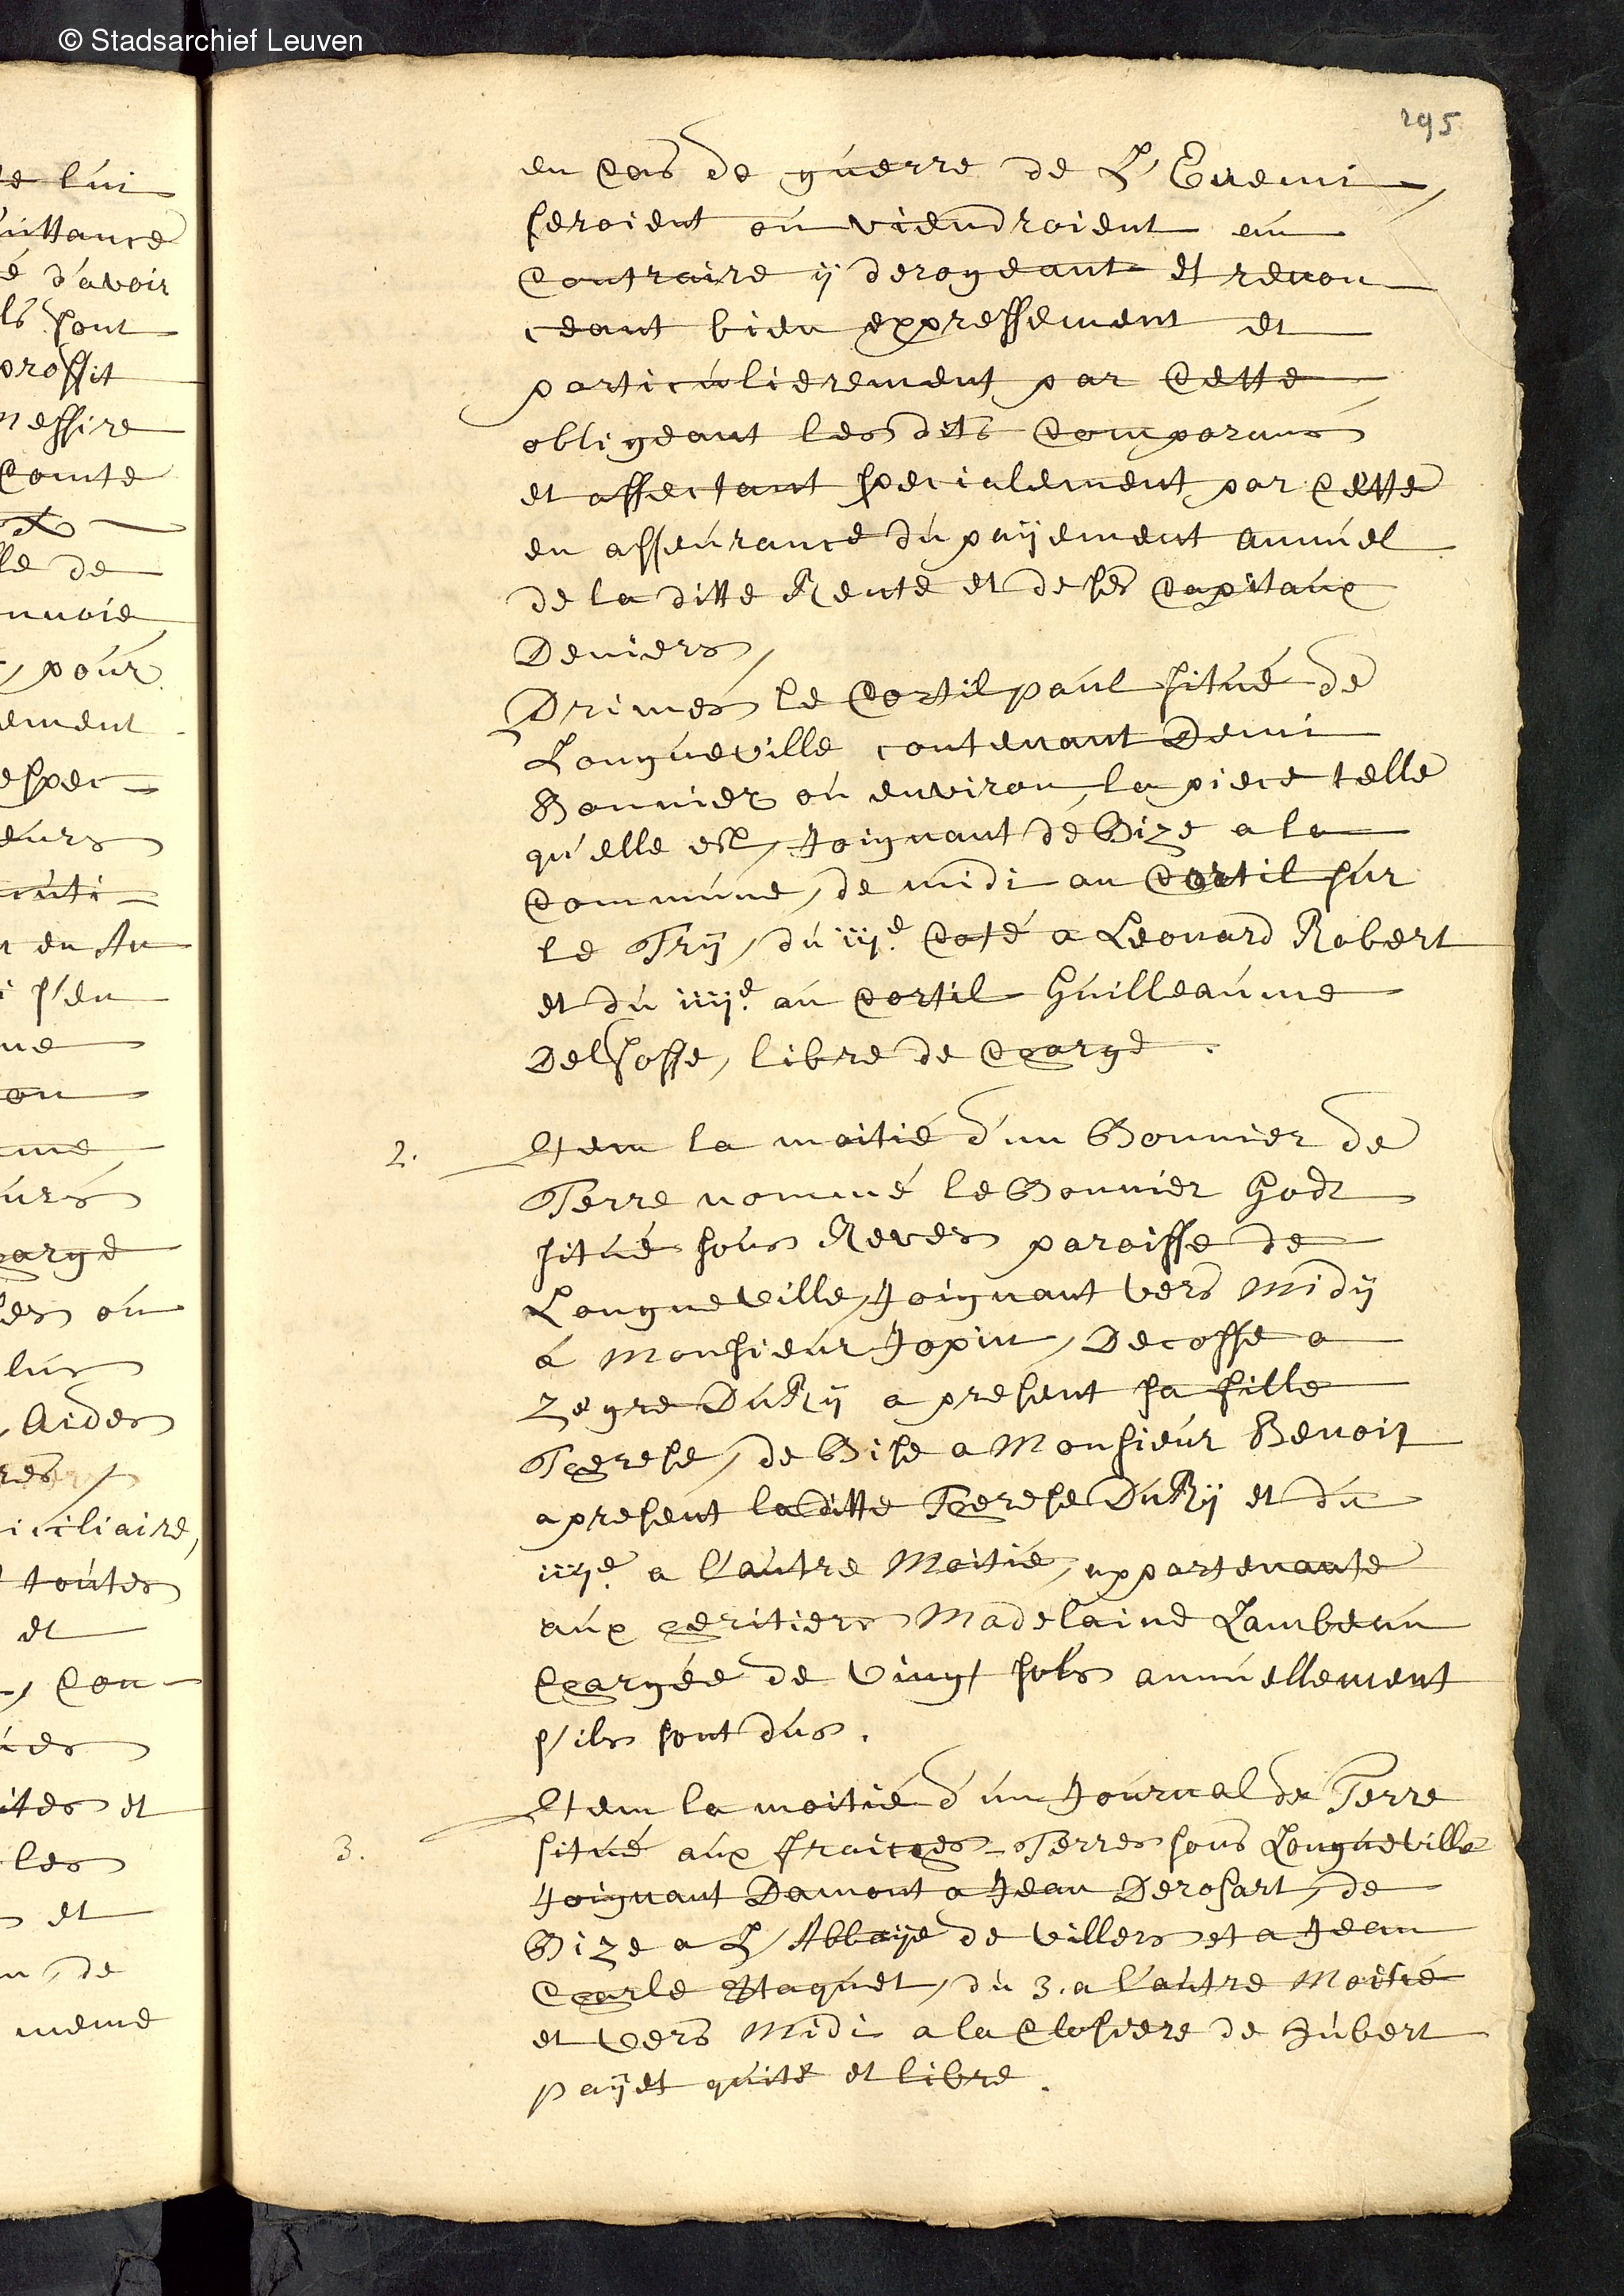 © Stadsarchief Leuven
295
en Cas de guerre de L'Enemi
seroient ou viendroient au
Contraire ÿ derogeant et renon
ceant bien expressement et
particulierement par Cette
obligeant les dits Comparans
et affectant specialement par Cette
en asseurance du paÿement annuel
de la ditte Rente et de ses Capitaux
Deniers,
Primes le Cortil paul situé de
Longueville contenant Demi
Bonnier ou environ, la piece telle
qu'elle est, Joignant de Bize a la
Commune, de midi au Cortil sur
le Trÿ, du iije. Coté a Leonard Robert
et du iiije. au Cortil Guilleaume
Delfosse, libre de Charge.
2. Item la moitié d'un Bonnier de
Terre nommé le Bonnier Godt
situé sous Reves paroisse de
Longueville, Joignant vers Midÿ
á Monsieur Jopin, Decosse a
Zegre DuRÿ a present sa fille
Therese, de Bise a Monsieur Benoit
apresent laditte Therese DuRÿ et du
iiije. a l'autre Moitié, appartenante
aux heritiers Madelaine Lambeau
Chargée de Vingt sols annuellement
s'ils sont dus.
Item la moitié d'un Journal de Terre
3. situé aux fraiches-Terres sous Longueville
Joignant Damont a Jean Derosart, de
Bize a L'Abbaÿe de Villers et a Jean
Charle Staquet, du 3. a l'autre Moitié
et Vers Midi a la Closiere de Hubert
paÿet quite et libre.
te lui
uittance
é d'avoir
ls sont
proffit
Messire
Comte
lle de
nnoie
, pour
ement
espec-
eurs
t en Au
s'en
ne
on
me
urs
harge
les ou
lus
Aides
iciliaire,
toutes
et
, Con-
ites et
les
et
n, de
meme